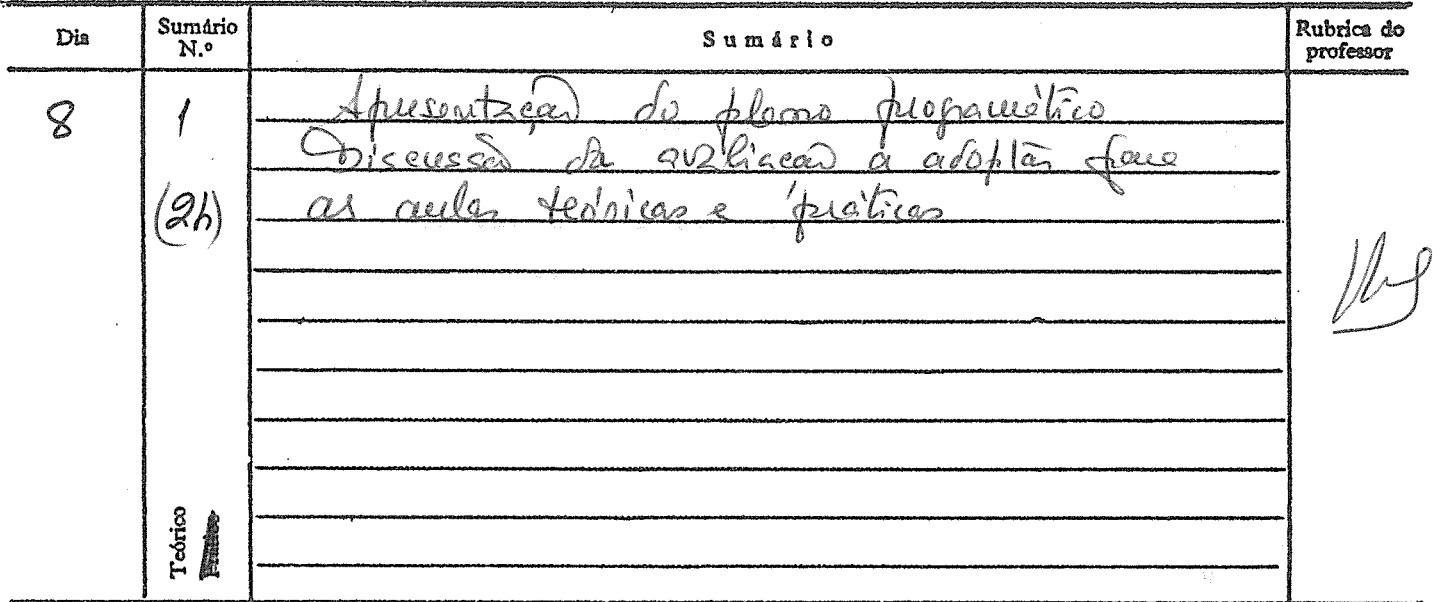 Dia Sumário N.º Sumário Rubrica do professor
8 1 Apresentação do plano programático
Discussão da avaliação a adoptar para
(2h) as aulas teóricas e práticas
Teórico